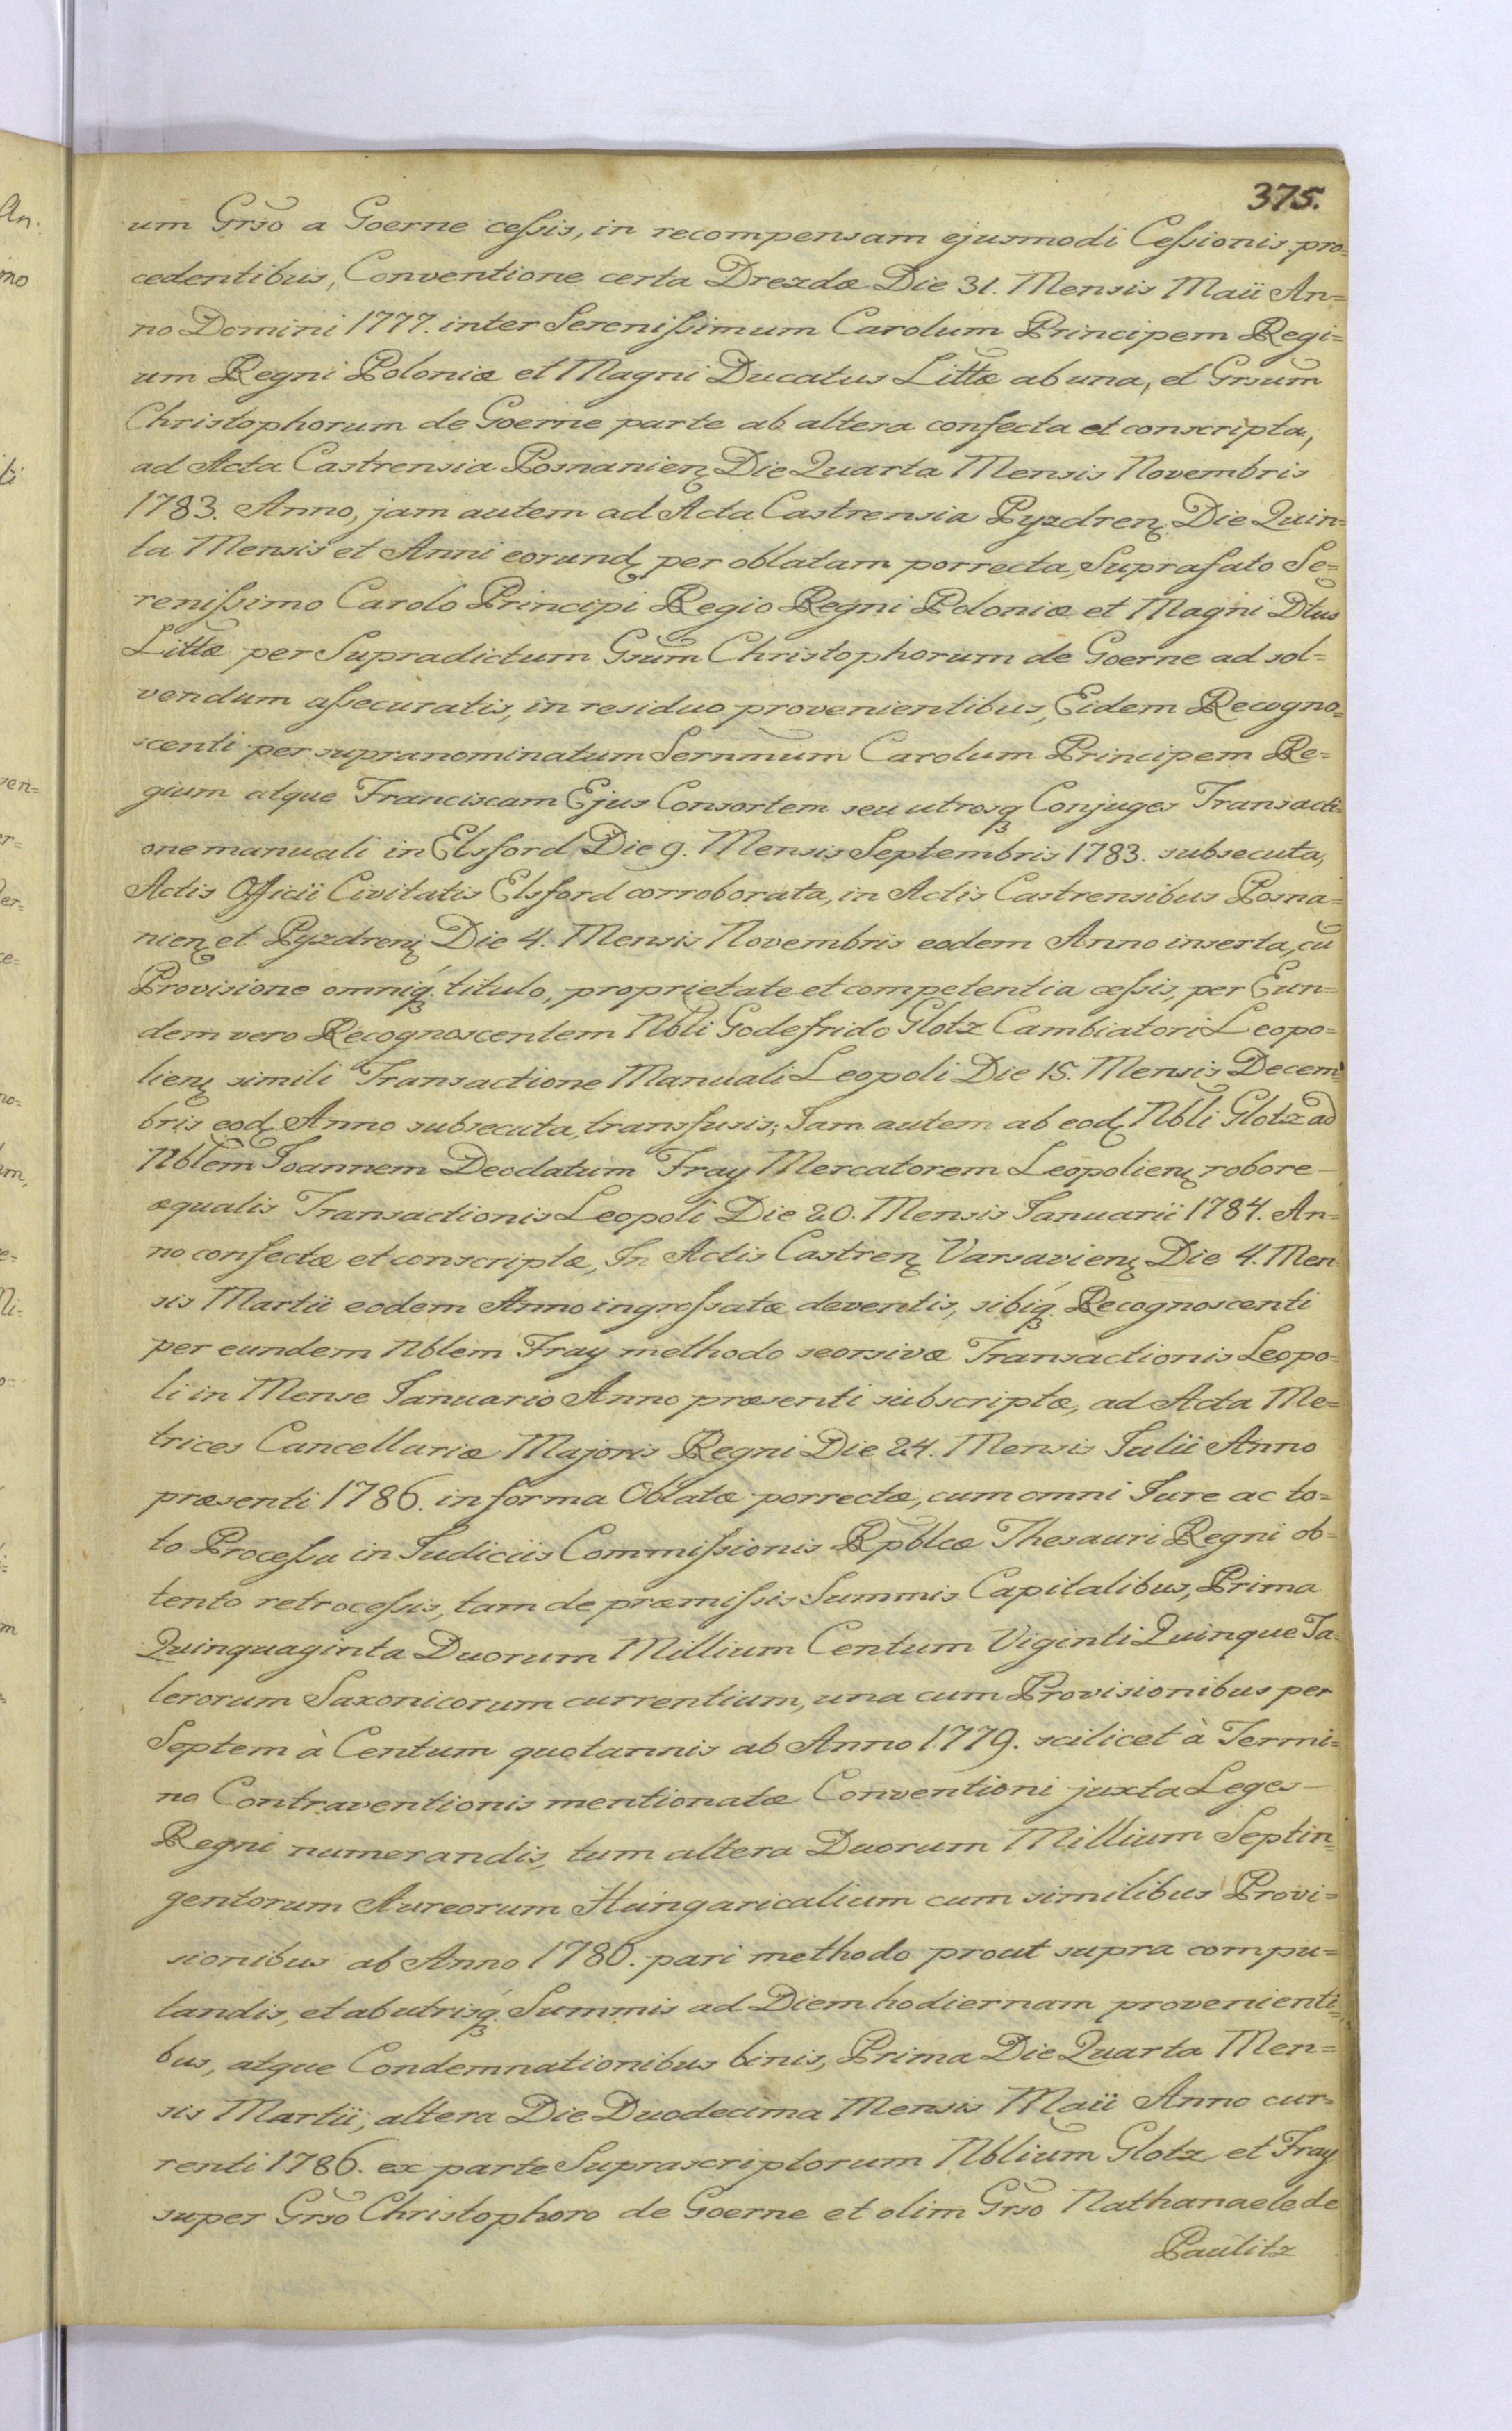 375.
um Grso a Goerne ceſsis, in recompensam ejusmodi Ceſsionis pro=
cedentibus, Conventione certa Drezdæ Die 31. Mensis Maii An=
no Domini 1777. inter Sereniſsimum Carolum Principem Regi=
um Regni Poloniæ et Magni Ducatus Littæ ab una, et Grsum
Christophorum de Goerne parte ab altera confecta et conscripta,
ad Acta Castrensia Posnanieñ Die Quarta Mensis Novembris
1783. Anno, jam autem ad Acta Castrensia Pyzdreñ Die Quin=
ta Mensis et Anni eorund per oblatam porrecta, Suprafato Se=
reniſsimo Carolo Principi Regio Regni Poloniæ et Magni Dtus
Littæ per Supradictum Gsum Christophorum de Goerne ad sol=
vendum aſsecuratis, in residuo provenientibus, Eidem Recogno=
scenti per supranominatum Sernmum Carolum Principem Re=
gium atque Franciscam Ejus Consortem seu utrosq Conjuges Transacti=
one manuali in Elsford Die 9. Mensis Septembris 1783. subsecuta,
Actis Officii Civitatis Elsford corroborata, in Actis Castrensibus Posna=
nieñ et Pyzdreñ Die 4. Mensis Novembris eodem Anno inserta, cu
Provisione omniq. titulo, proprietate et competentia ceſsis, per Eun=
dem vero Recognoscentem Nbli Godefrido Glotz Cambiatori Leopo=
lieñ simili Transactione Manuali Leopoli Die 15. Mensis Decem=
bris eod Anno subsecuta, transfusis; Jam autem ab eod Nbli Glotz ad
Nblem Joannem Deodatum Fray Mercatorem Leopolieñ robore—
æqualis Transactionis Leopoli Die 20. Mensis Januarii 1784. An=
no confectæ et conscriptæ, In Actis Castreñ Varsavieñ Die 4. Men=
sis Martii eodem Anno ingroſsatæ deventis, sibiq. Recognoscenti
per eundem Nblem Fray methodo seorsivæ Transactionis Leopo=
li in Mense Januario Anno præsenti subscriptæ, ad Acta Me=
trices Cancellariæ Majoris Regni Die 24. Mensis Julii Anno
præsenti 1786. in forma Oblatæ porrectæ, cum omni Jure ac to=
to Proceſsu in Judiciis Commiſsionis Rpblcæ Thesauri Regni ob=
tento retroceſsis, tam de præmiſsis Summis Capitalibus, Prima
Quinquaginta Duorum Millium Centum Viginti Quinque Ta=
lerorum Saxonicorum currentium, una cum Provisionibus per
Septem à Centum quotannis ab Anno 1779. scilicet à Termi=
no Contraventionis mentionatæ Conventioni juxta Leges—
Regni numerandis, tum altera Duorum Millium Septin=
gentorum Aureorum Hungaricalium cum similibus Provi=
sionibus ab Anno 1780. pari methodo prout supra compu=
tandis, et ab utrisq. Summis ad Diem hodiernam provenienti=
bus, atque Condemnationibus binis, Prima Die Quarta Men=
sis Martii, altera Die Duodecima Mensis Maii Anno cur=
renti 1786. ex parte Suprascriptorum Nblium Glotz et Fray
super Grso Christophoro de Goerne et olim Grso Nathanaele de
Paulitz